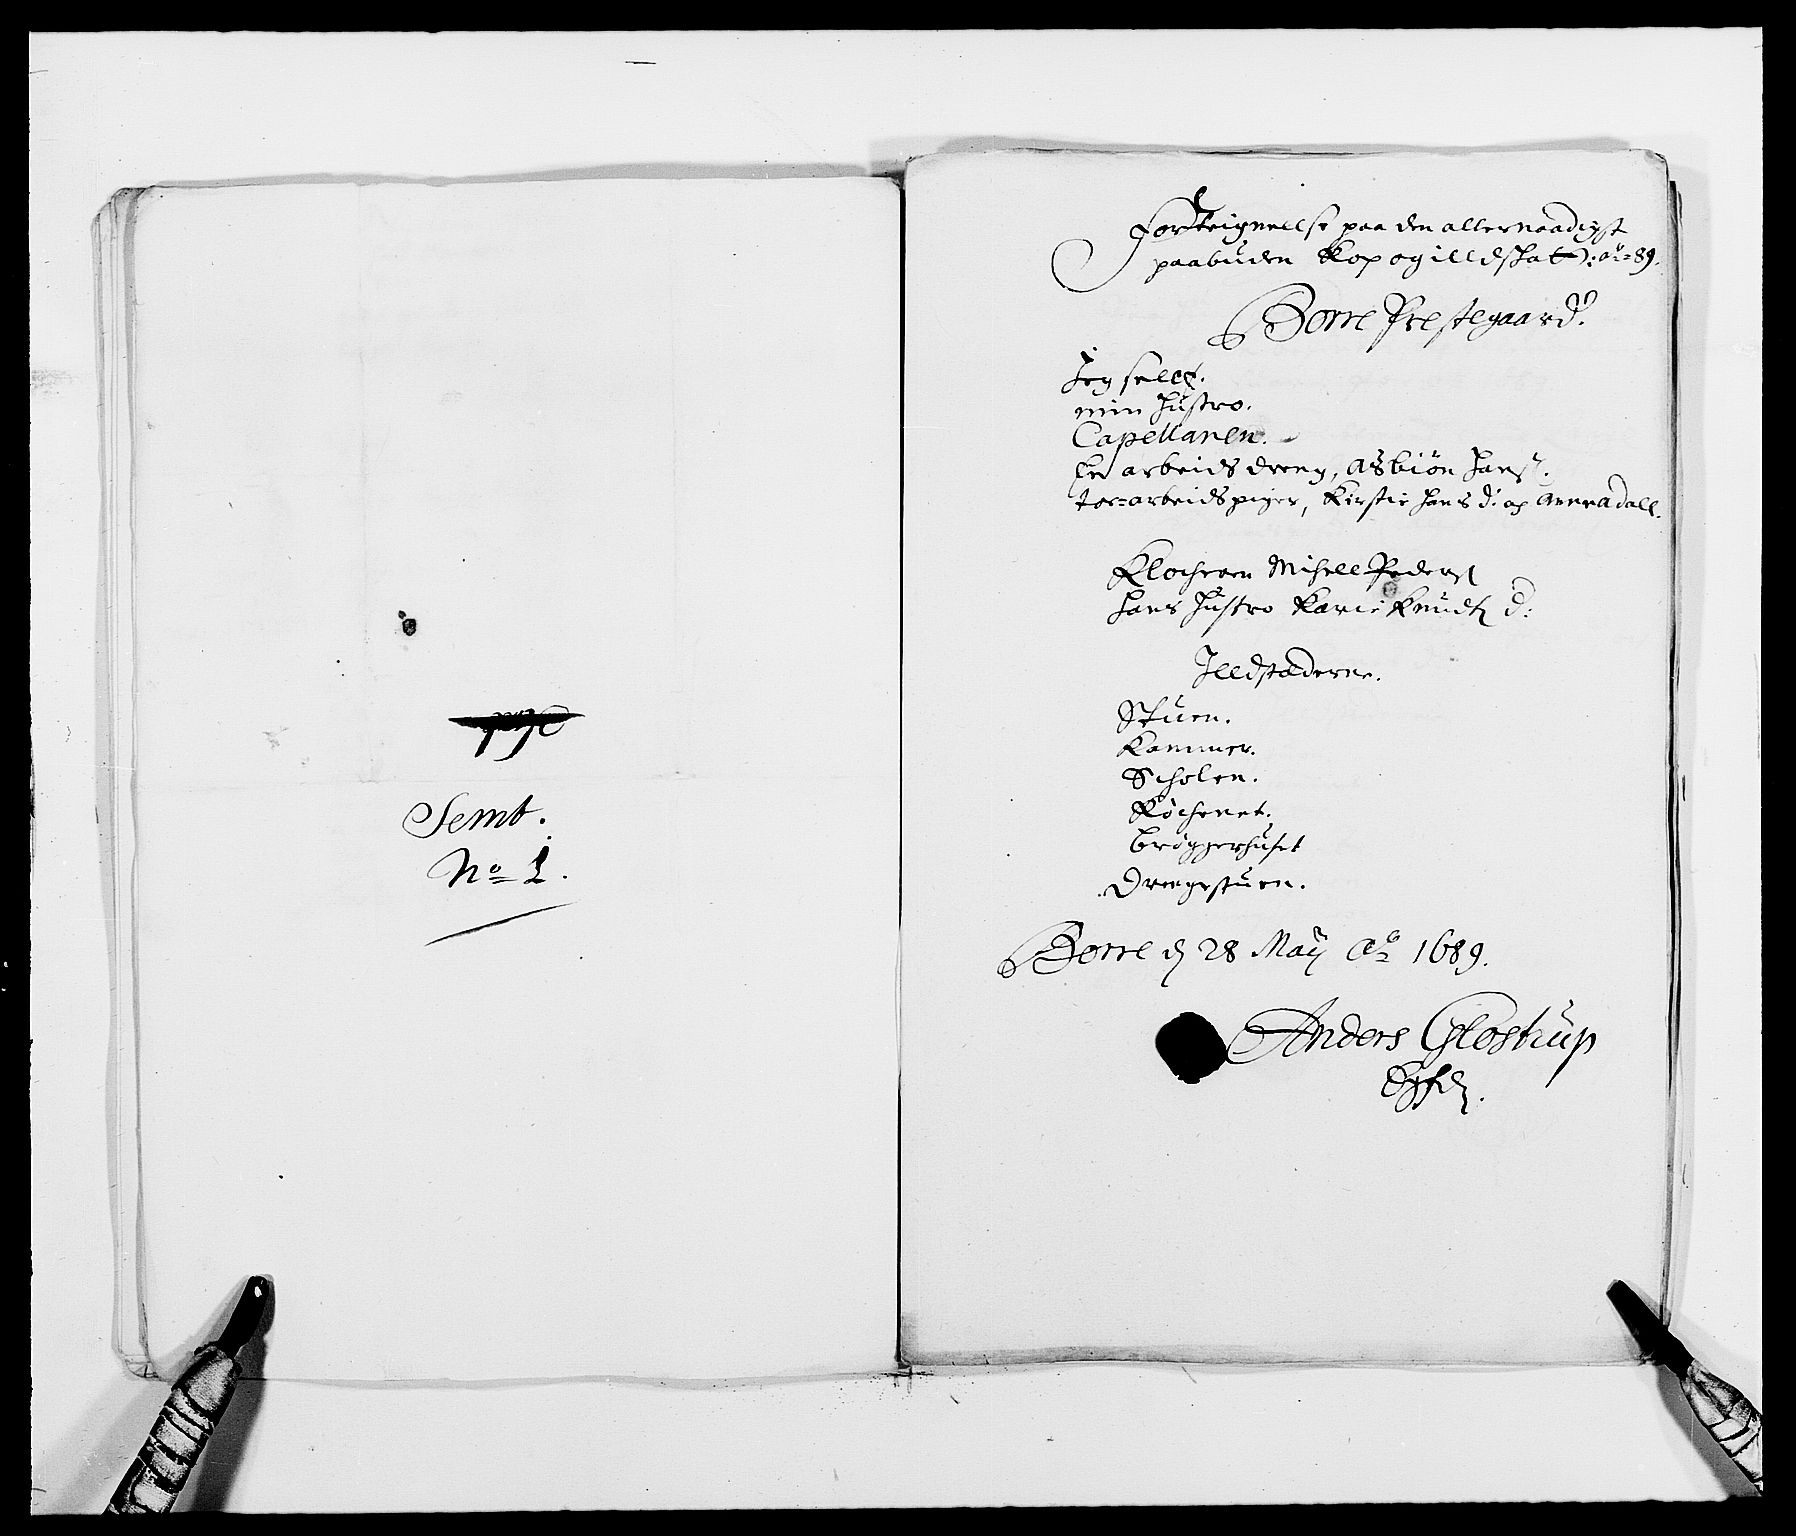 Semb.
No 1.
Forteignellse paa den allernaadigst
paabuden Kop og illdskat: ao 89.
Borre Prestegaard.
Jeg sellf.
min hustro.
Capellanen.
En arbeids dreng, Asbiøn Hans.
toe arbeidspiger, Kirstie Hans d: og Anna dall.
Klocheren Michell Peders
hans hustro Karie Knuds d:
Illdstæderne.
Stuen.
Kammer.
Scholen.
Køchenet.
brøggerhuset
Drengestuen.
Borre d 28 Maij Ao 1689.
Anders Glostrup